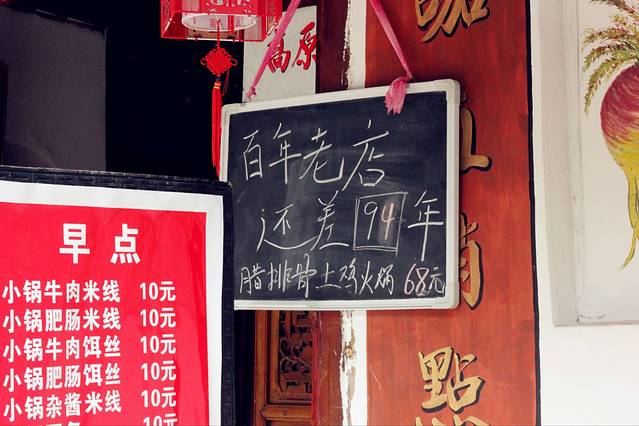 高原
百年老店
还差94年
腊排骨土鸡火锅 68元
早点
小锅牛肉米线 10元
小锅肥肠米线 10元
小锅牛肉饵丝 10元
小锅肥肠饵丝 10元
小锅杂酱米线 10元
10元
點